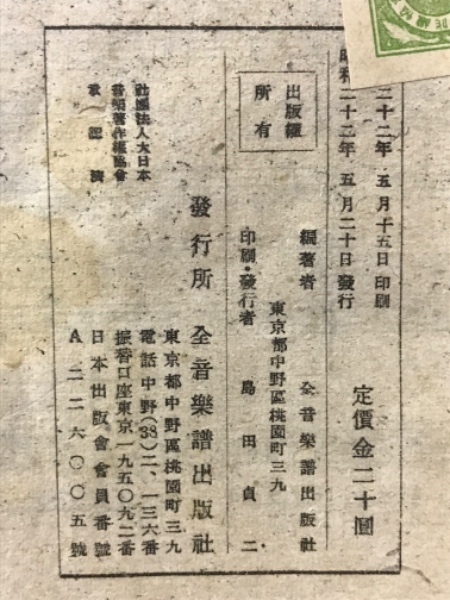 二十二年 五月十五日 印刷
昭和二十二年 五月二十日 發行
定價金二十圓
出版權
所有
編著者 全音樂譜出版社
東京都中野區桃園町三九
印刷・發行者 島田貞二
發行所 全音樂譜出版社
東京都中野區桃園町三九
電話中野(38)二、一三六番
振替口座東京一九五〇九二番
日本出版會會員番號
A 二二六〇〇五號
社團法人大日本
音樂著作權協會
承認濟